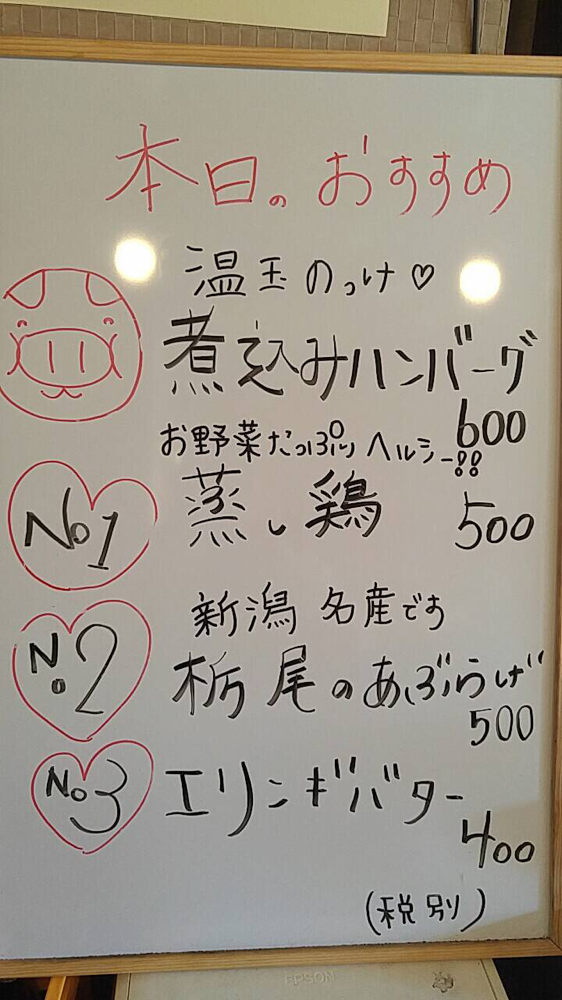 本日のおすすめ
温玉のっけ♡
煮込みハンバーグ
600
お野菜たっぷり ヘルシー!!
No1
蒸し鶏
500
新潟 名産です
No2
栃尾のあぶらげ
500
No3
エリンギバター
400
(税別)
EPSON